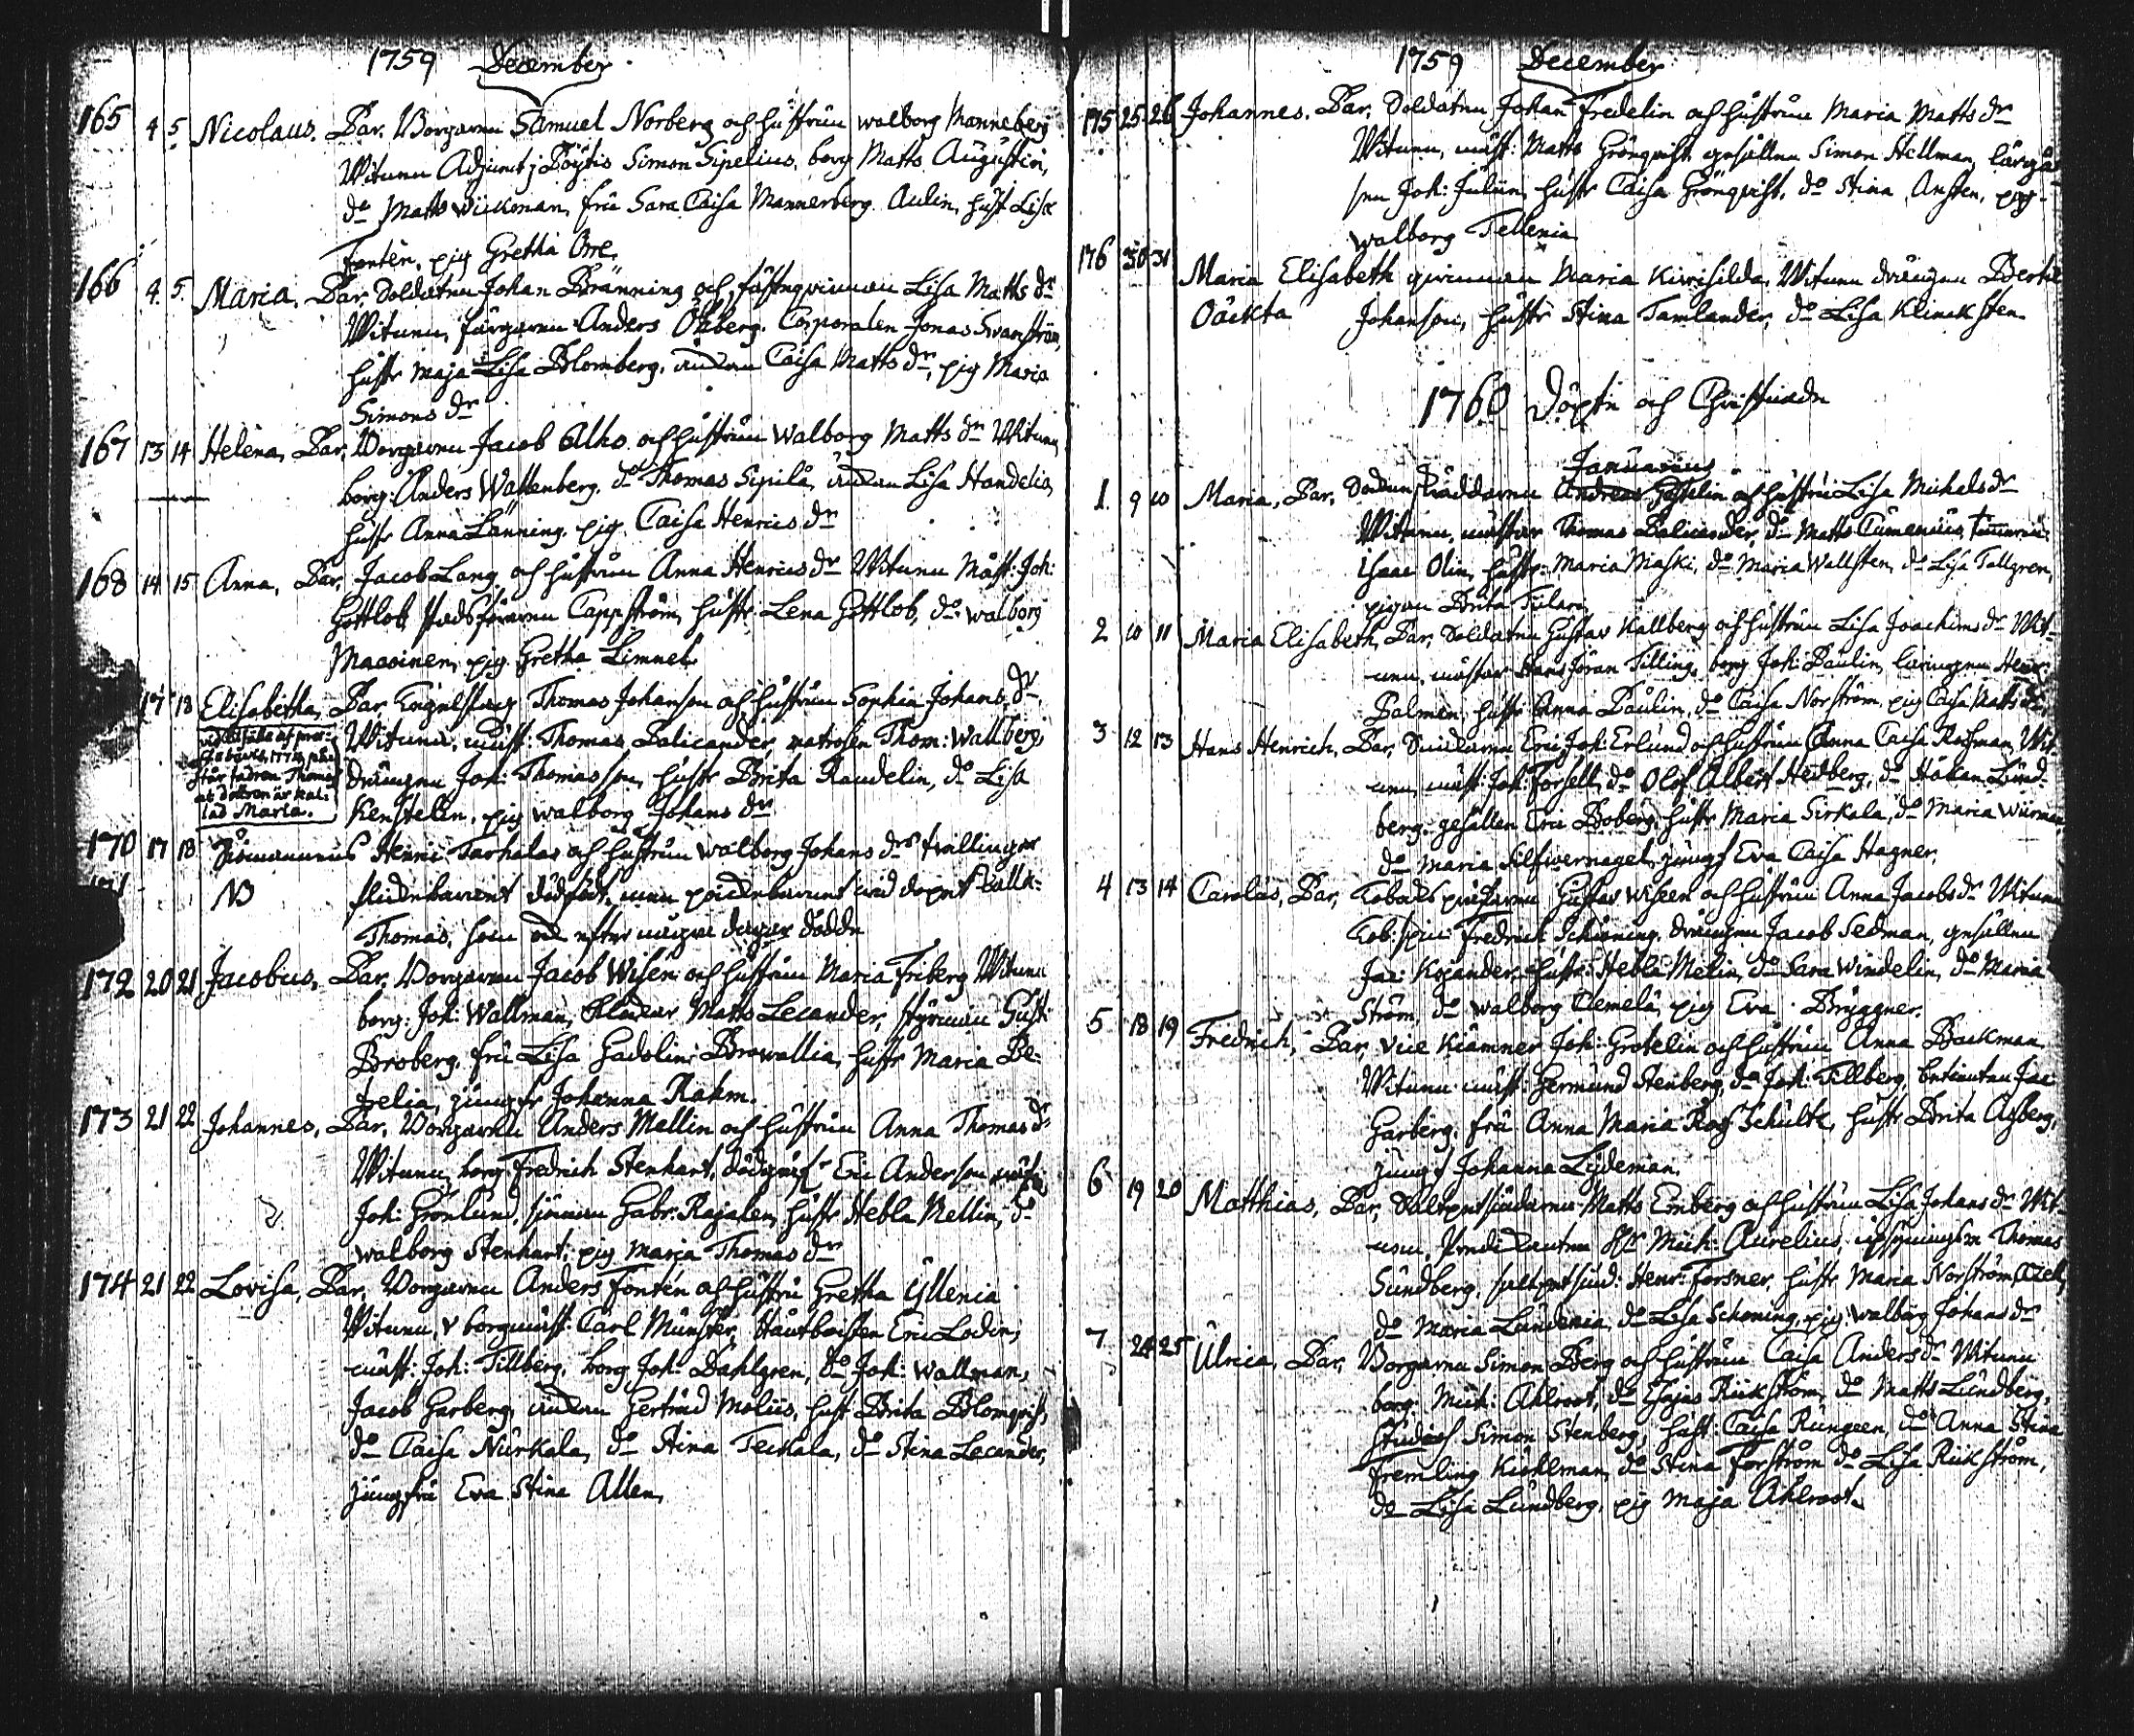 1759 December
165 4 5 Nicolaus. Par. Borgaren Samuel Norberg och hustrun Walborg Manneberg
Witnen Adjunct j Pöytis Simon Sipelius. borg Matts Augustin,
do Matts Wickman, fru Sara Caisa Mannerberg Aulin, hust Lisa
Fontén, pig Gretha Orre.
166 4. 5. Maria. Par. Soldaten Johan Bränning och fästeqvinnan Lisa Matts dr
Witnen, färgaren Anders Öhberg. Corporalen Jonas Svanström,
hustr Maja Lisa Blomberg. änkan Caisa Matts dr, pig Maria
Simons dr
167 13 14 Helena, Par. Borgaren Jacob Alho och hustrun Walborg Matts dr Witnen,
borg: Anders Wallenberg. do Thomas Sipilä, änkan Lisa Handelin,
hustr Anna Länning. pig Caisa Henrics dr
168 14 15 Anna, Par. Jacob Lang och hustrun Anna Henrics dr Witnen Mäst: Joh:
Gottlob, stads föraren Cappström, hustr: Lena Gottlob, do Walborg
Maaoinen, pig Gretha Limnel.
17 18 Elisabetha, Par Tornstaen Thomas Johanson och hustrun Sophia Johans dr
Witnen, mäst: Thomas Salicander, matrosen Thom: Wallberg,
drängen Joh: Thomasson, hustr Brita Randelin, do Lisa
Kenstelin, pig Walborg Johans dr
1772, på
står fadren Thomas
at dottren är kal-
lad Maria.
170 17 18 Sjömannens Henric Tarhalas och hustrun Walborg Johans drs tvillingar
NB flickebarnet dödfödt, men gossebarnet vid döpet kall:
Thomas, som od efter några dagar dödde
172 20 21 Jacobus, Par. Borgaren Jacob Wisén och hustrun Maria Friberg Witnen
borg: Joh: Wallman, Matts Lecander, styrman Gust:
Broberg. fru Lisa Gadolin Browallia, hustr Maria Be-
trelia, jungfr Johanna Rahm.
173 21 22 Johannes, Par. Borgaren Anders Mellin och hustrun Anna Thomas dr
Witnen, borg Fredrich Stenhart, Eric Anderson, mäst
Joh: Grönlund, sjöman Gabr. Rajalen, hustr Hebla Mellin, do
Walborg Stenhart. pig Maria Thomas dr
174 21 22 Lovisa, Par. Borgaren Anders Fontén och hustru Gretha Yllenia
Witnen, v borgmäst: Carl Münster, Hautboisten Eric Lodin,
mäst: Joh: Tillberg, borg Joh: Dahlgren, do Joh: Wallman,
Jacob Garberg, änkan Gertrud Molius, hust Brita Blomqvist,
do Caisa Nürkala, do Stina Teckala, do Stina Lecander,
jungfru Eva Stina Allen,
1759 December
175 25 26 Johannes. Par. Soldaten Johan Fredelin och hustrun Maria Matts dr
Witnen, mäst: Matts Grönqvist, gesällen Simon Stellman, lärgås-
sen Joh: Julin, hustr Caisa Grönqvist, do Stina Ansten, pig
Walborg Tellenia
176 30 31 Maria Elisabeth qvinnan Maria Kirrisilda, Witnen drängen Bertil
Oäckta Johanson, hustr Stina Tamlander, do Lisa Klincksten
1760 Döpte och Christnade
Januarius
1. 9 10 Maria, Par. Andreas Gestelin och hustru Lisa Michels dr
Witnen, mästar Thomas Salicander, do Matts Cumenius, timmerm:
Isaac Olin, hustr: Maria Maski, do Maria Wallsten, do Lisa Tallgren,
pigan Brita Tulari.
2 10 11 Maria Elisabeth, Par. Soldaten Gustav Kallberg och hustrun Lisa Joachims dr Wit-
nen, mästar Hans Jöran Tilling, borg Joh: Paulin, lärlingen Henr:
Palmen, hustr Anna Paulin, do Caisa Norström, pig Caisa Matts dr,
3 12 13 Hans Henrich, Par. Eric Joh: Erlund och hustrun Anna Caisa Rosman, Wit-
nen, mäst: Joh: Forsell, do Olof Albert Hedberg, do Håkan Lind-
berg. gesällen Eric Boberg, hustr Maria Sirkala, do Maria Wirman
do Maria Silfwernagel, jungf Eva Caisa Hagner.
4 13 14 Carolus, Par. Tobaks spinnaren Gustav Wiseen och hustrun Anna Jacobs dr Witnen
Tob: spin: Fredrich Schöning, drängen Jacob Sedman, gesällen
Jac: Kojander, hustr: Hebla Melin, do Sara Windelin, do Maria
Ström, do Walborg Clemelä, pig Eva Bryggner.
5 18 19 Fredrich, Par. Vice Kiämner Joh: Grotelin och hustrun Anna Backman.
Witnen mäst: Germund Stenberg, do Joh: Tillberg, betienten Jac
Garberg, fru Anna Maria Ross Schultz, hustr Brita Asberg,
jungf Johanna Lydeman.
6 19 20 Matthias, Par. Saltpetsjudaren Matts Enberg och hustrun Lisa Johans dr Wit-
nen, Predikanten Hr Mich: Aurelius, upsyningsm Thomas
Sundberg, saltpetsjud: Henr: Forsner, hustr Maria Norström Ticel,
do Maria Lundenia, do Lisa Schöning, pig Walborg Johans dr
7 24 25 Ulrica, Par. Borgaren Simon Berg och hustrun Caisa Anders dr Witnen
borg: Mich: Ahlroot, do Esajas Rickström, do Matts Lundberg,
Studios Simon Stenberg, hust: Caisa Rungeen, do Anna Stina
Fremling Kiöhlman, do Stina Forström do Lisa Rickström,
do Lisa Lundberg, pig Maja Ahlroot.